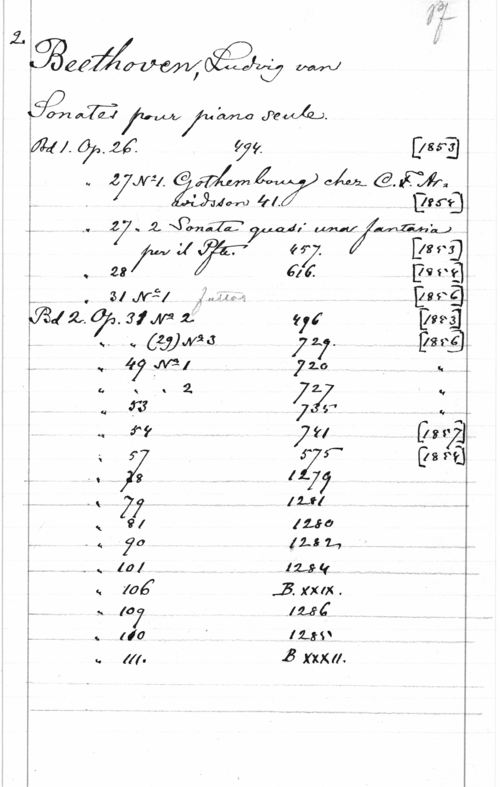 pf
2.
Beethoven, Ludvig van
Sonates pour piano seule.
Bd 1. Op. 26. 494. [1853]
" 27 No 1. Gothembourg chez C. F. Ar=
widsson 41. [1854]
" 27. 2 Sonata quasi una fantasia
per il Pfte. 457. [1853]
" 28 616. [1854]
" 31 No 1 fattas [1856]
Bd 2. Op. 31 No 2 496 [1853]
" " (29) No 3 729. [1856]
" 49 No 1 720 "
" " " 2 727 "
" 53 735 "
" 54 741 [1857]
" 57 575 [1854]
" 78 1279
" 79 1281
" 81 1280
" 90 1282
" 101 1284
" 106 B. XXIX.
" 109 1286
" 110 1285
" 111. B XXXII.